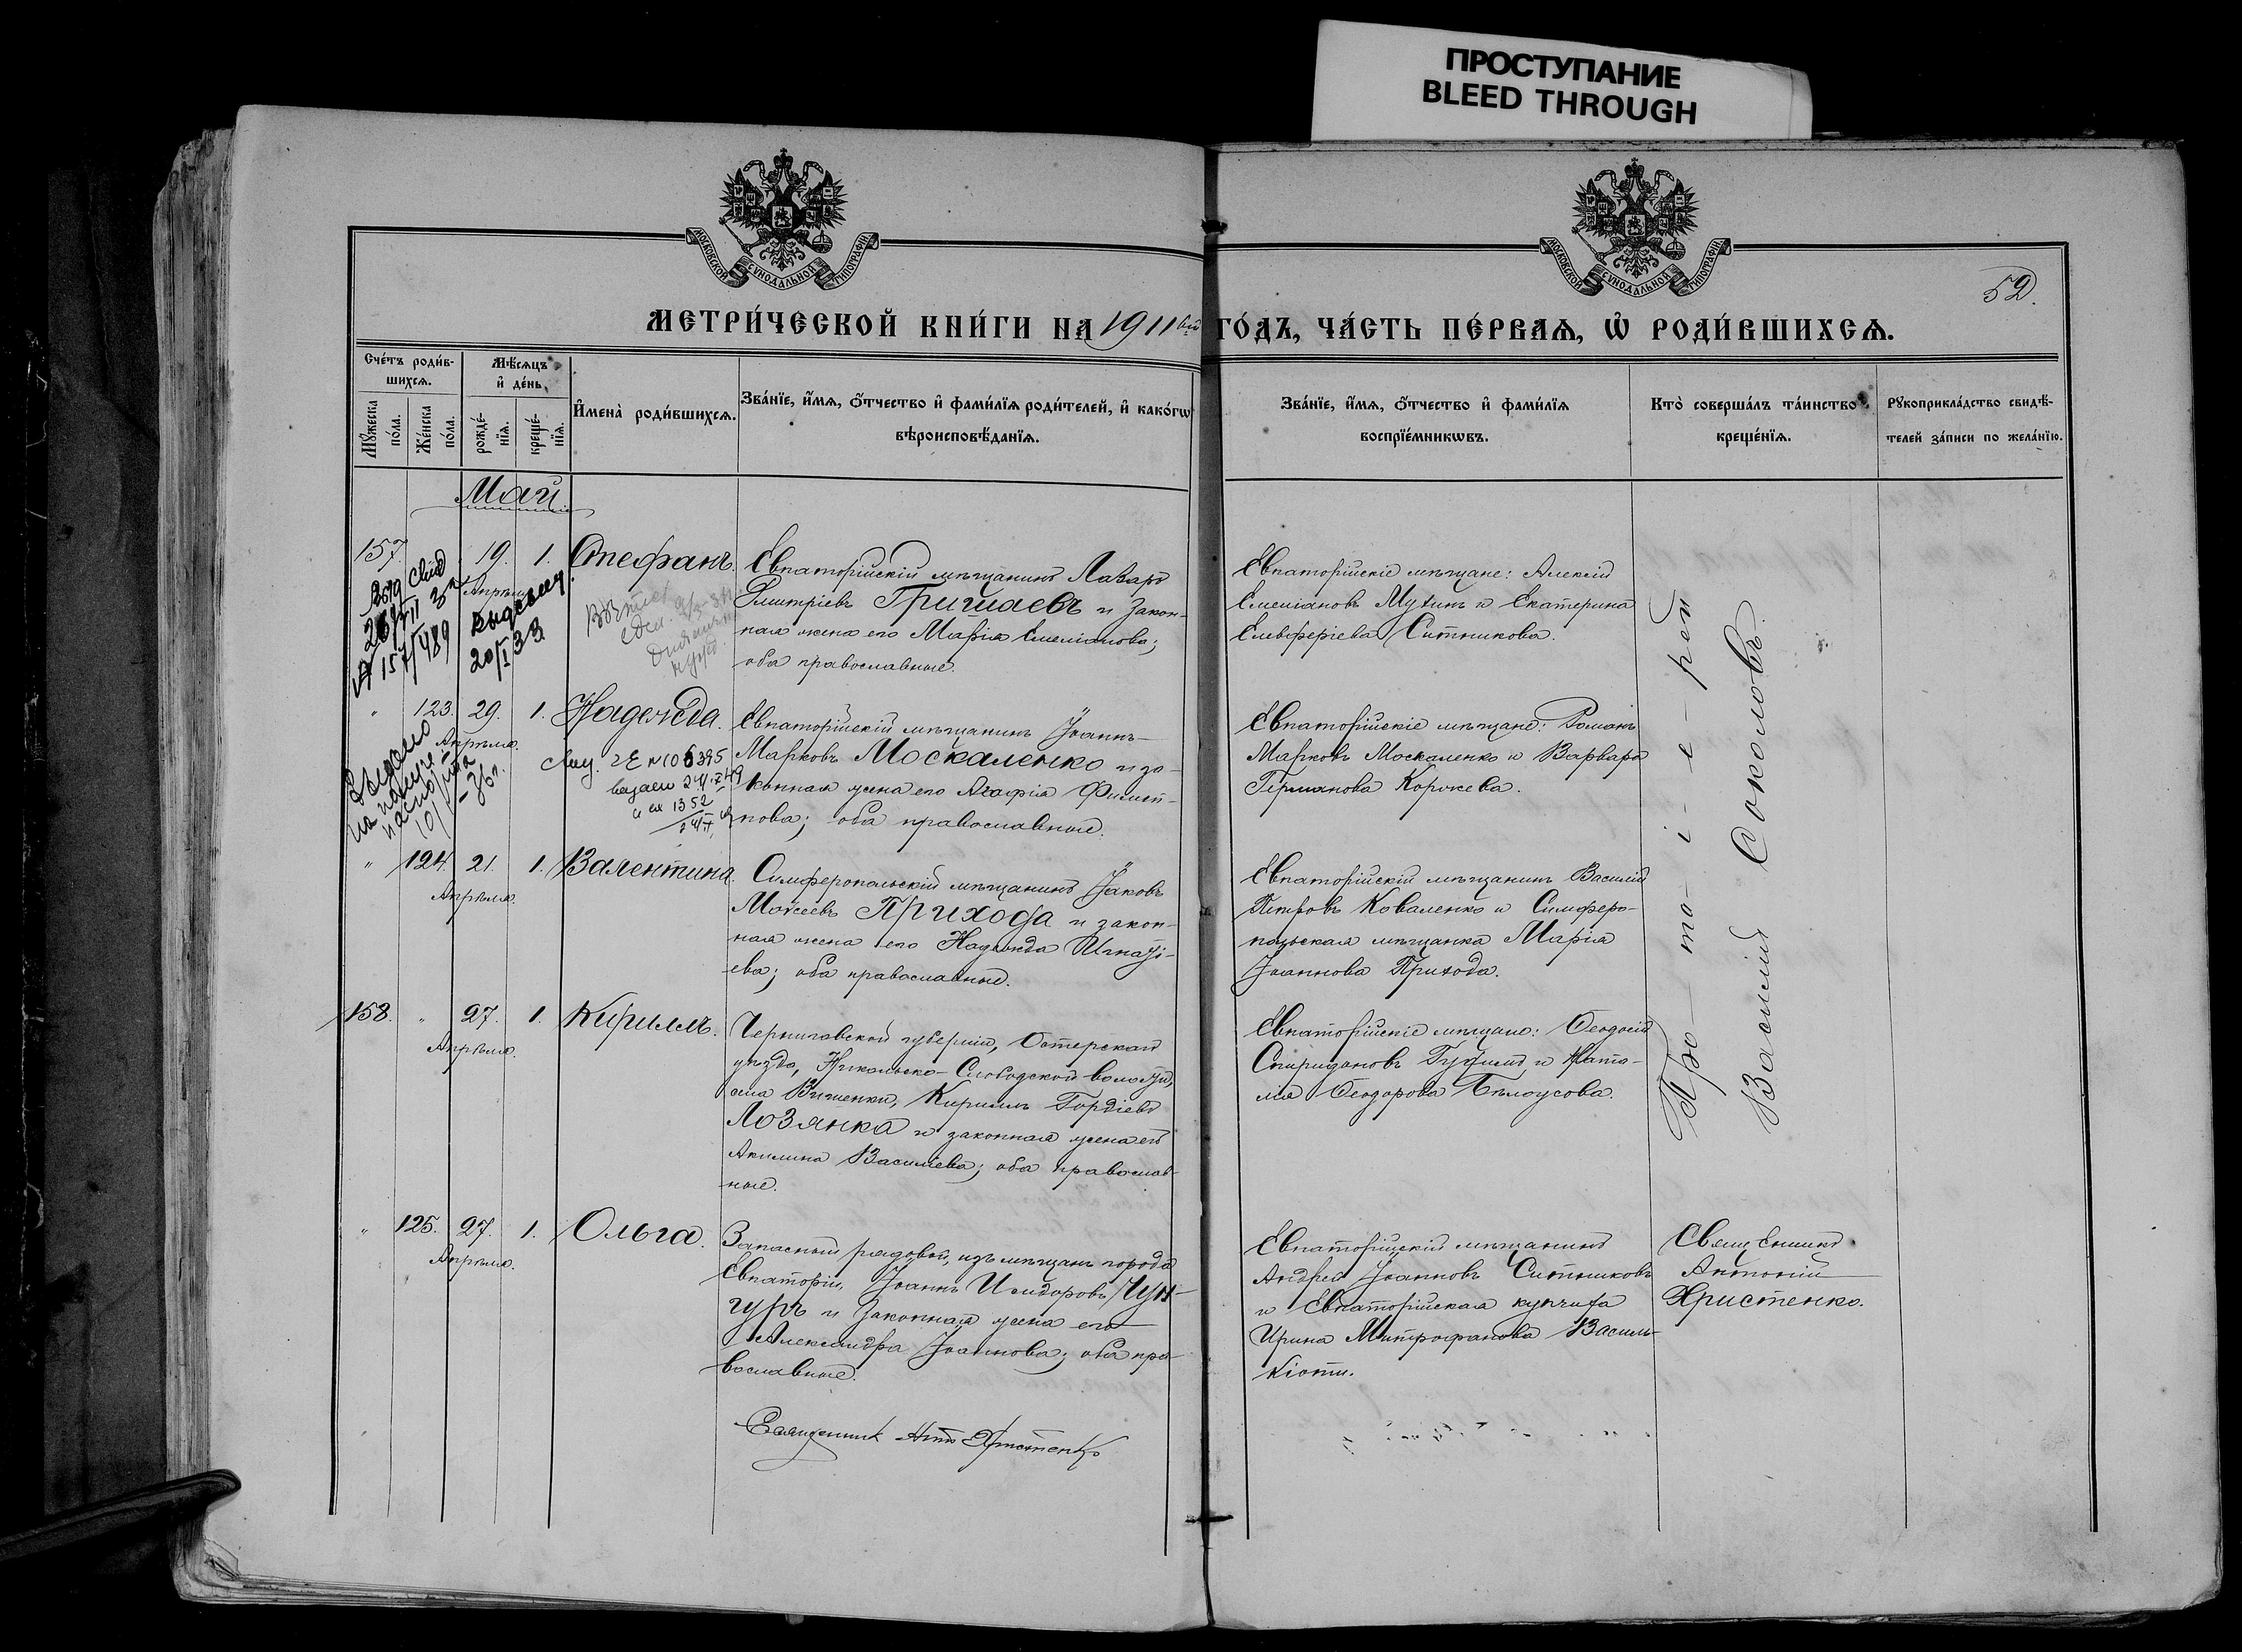 ПРОСТУПАНИЕ
BLEED THROUGH
МОСКОВСКОЙ СѴНОДАЛЬНОЙ ТИПОГРАФІИ
МОСКОВСКОЙ СѴНОДАЛЬНОЙ ТИПОГРАФІИ
52.
МЕТРИ́ЧЕСКОЙ КНИ́ГИ НА 1911 ГО́ДЪ, ЧА́СТЬ ПЕ́РВАѦ, Ѡ҆ РОДИ́ВШИХСѦ.
Сче́тъ роди́в-
шихсѧ.
Мꙋ́жеска
по́ла.
Же́нска
по́ла.
Мѣ́сѧцъ
и҆ де́нь.
рожде́-
нїѧ.
креще́-
нїѧ.
И҆мена̀ роди́вшихсѧ.
Зва́нїе, и҆́мѧ, ѻ҆́тчество и҆ фами́лїѧ роди́телей, и҆ како́гѡ
вѣроисповѣ́данїѧ.
Зва́нїе, и҆́мѧ, ѻ҆́тчество и҆ фами́лїѧ
воспрїе́мникѡвъ.
Кто̀ соверша́лъ та́инство
креще́нїѧ.
Рꙋкоприкла́дство свидѣ́-
телей за́писи по жела́нїю.
Май
157. 19. 1. Стефанъ.
Апрѣля
26/VII
№ 157/489
20/I 33
Евпаторійскій мѣщанинъ Лазарь
Димитріевъ Григшаевъ и закон-
ная жена его Марія Емеліанова;
оба православные.
Евпаторійскіе мѣщане: Алексій
Емеліановъ Мухинъ и Екатерина
Елевферіева Ситникова.
" 123. 29. 1. Надежда.
Апрѣля.
Выдано
10/I - 36 г.
Евпаторійскій мѣщанинъ Іоаннъ
Марковъ Москаленко и за-
конная жена его Агафія Филип-
пова; оба православные.
Евпаторійскіе мѣщане: Романъ
Марковъ Москаленко и Варвара
Германова Корнева.
" 124. 21. 1. Валентина.
Апрѣля.
Симферопольскій мѣщанинъ Іаковъ
Моѵсеевъ Прихода и закон-
ная жена его Надежда Игнаті-
ева; оба православные.
Евпаторійскій мѣщанинъ Василій
Петровъ Коваленко и Симферо-
польская мѣщанка Марія
Іоаннова Прихода.
158. " 27. 1. Кириллъ.
Апрѣля.
Черниговской губерніи, Остерскаго
уѣзда, Никольско-Слободской волости,
села Вишенки, Кириллъ Гордіевъ
Лозянка и законная жена его
Акилина Василіева; оба православ-
ные.
Евпаторійскіе мѣщане: Ѳеодосій
Спиридоновъ и Ната-
лія Ѳеодорова Бѣлоусова.
Про-то-і-е-рей
Василій Соколовъ.
" 125. 27. 1. Ольга.
Апрѣля.
Запасный рядовой, изъ мѣщанъ города
Евпаторіи, Іоаннъ Исидоровъ Чун-
гуръ и законная жена его
Александра Іоаннова; оба пра-
вославные.
Евпаторійскій мѣщанинъ
Андрей Іоанновъ Ситниковъ
и Евпаторійская купчиха
Ирина Митрофанова Василь-
кіоти.
Священникъ
Антоній
Христенко.
Священник Ант Христенко